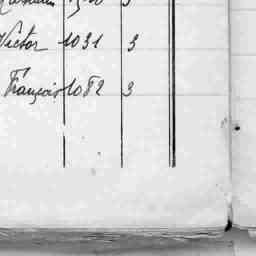 3
Victor 1031 3
François 1082 3